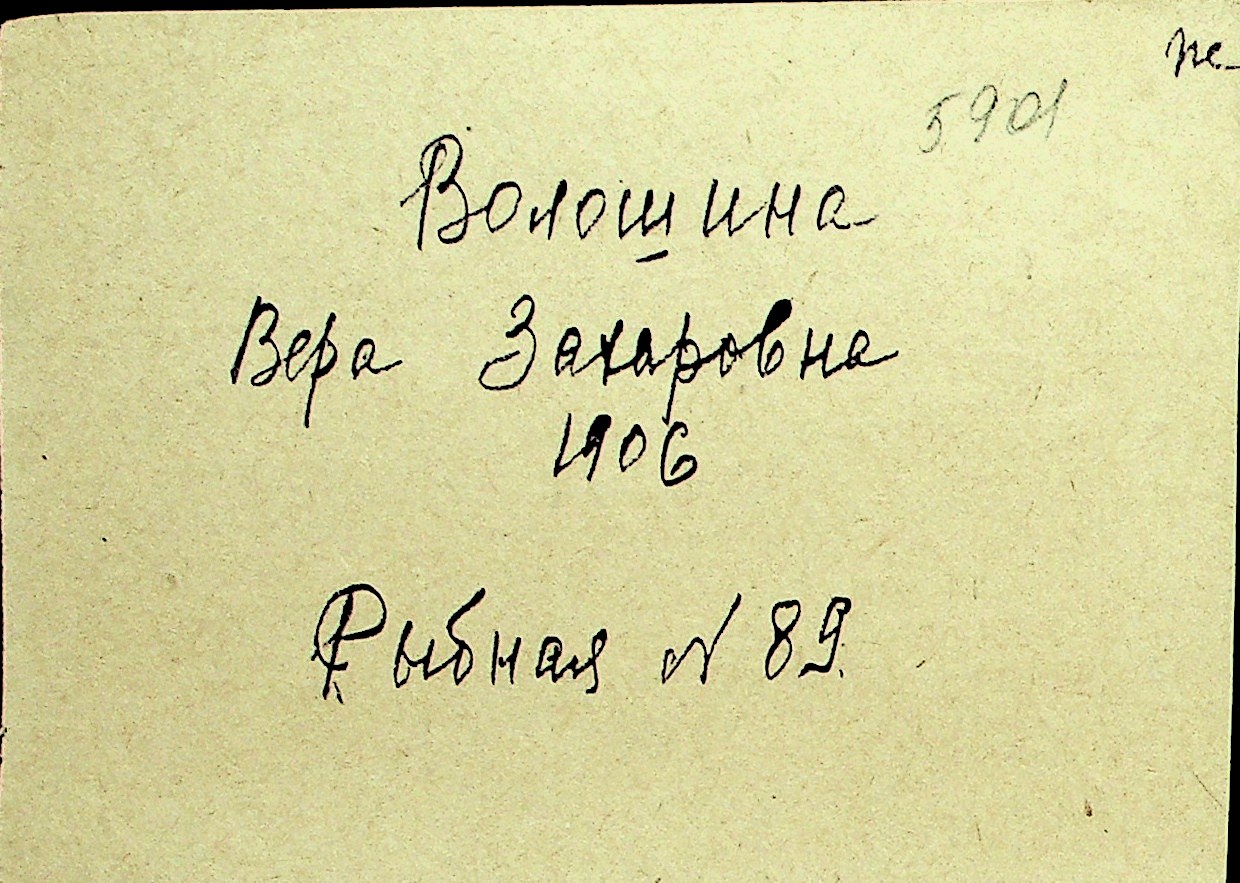 5901
Волошина
Вера Захаровна
1906
Рыбная N 89.